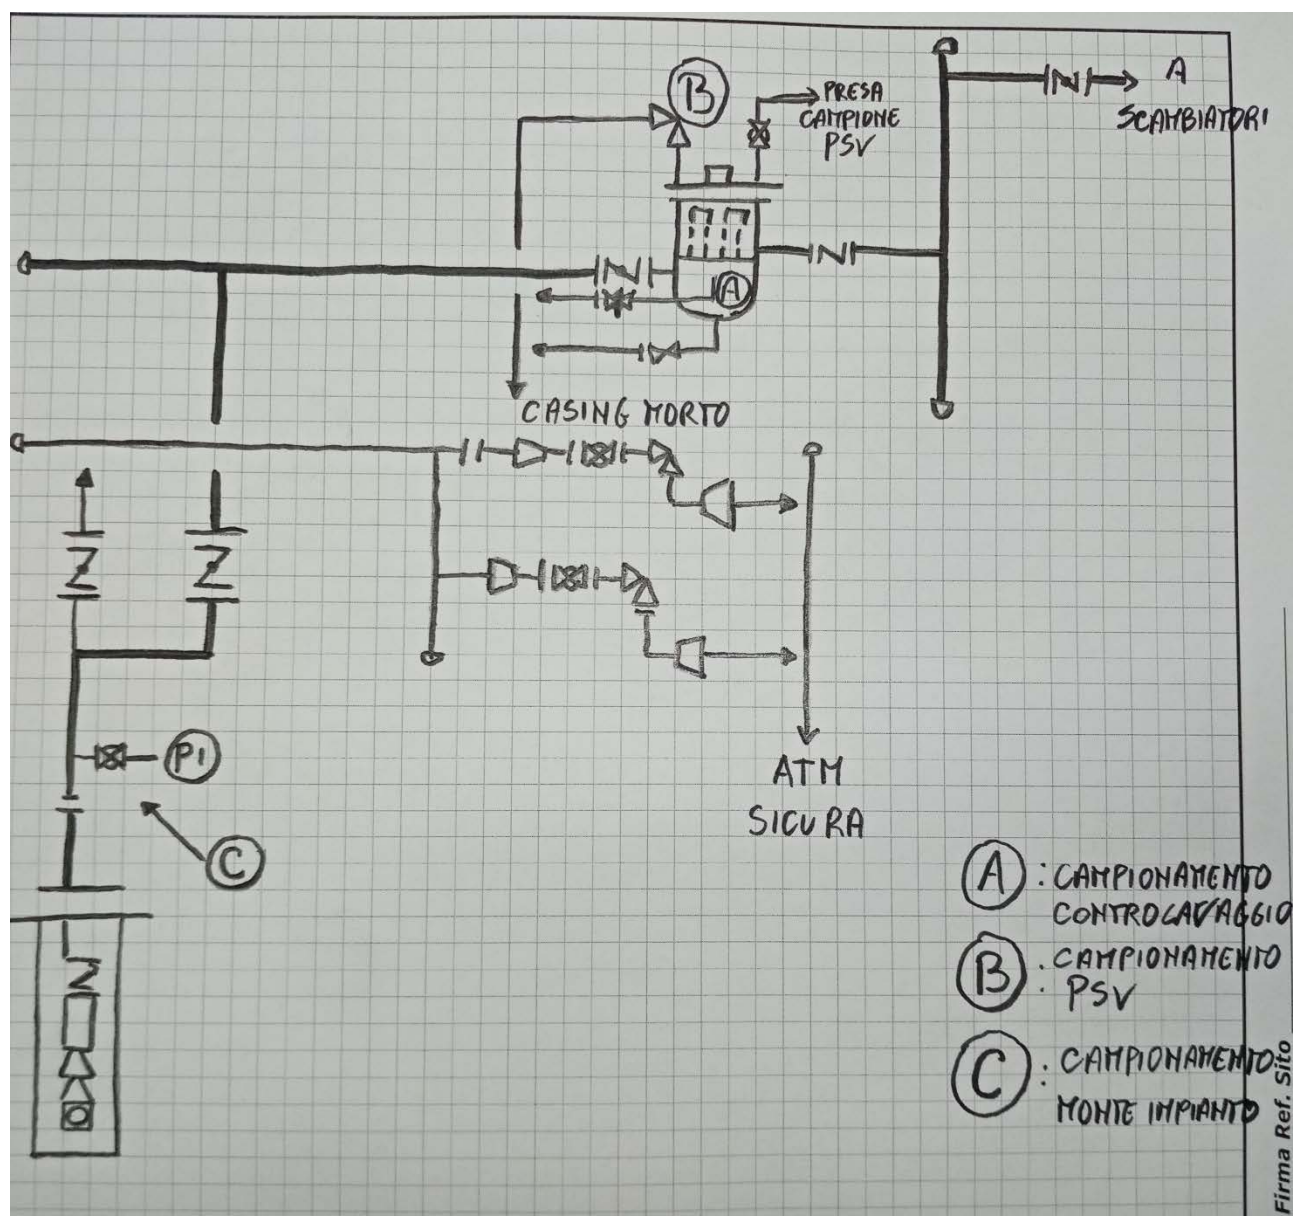 B
PRESA
CAMPIONE
PSV
A
SCAMBIATORI
A
CASING MORTO
PI
ATM
SICURA
C
A : CAMPIONAMENTO
CONTROLAVAGGIO
B : CAMPIONAMENTO
PSV
C : CAMPIONAMENTO
MONTE IMPIANTO
Firma Ref. Sito